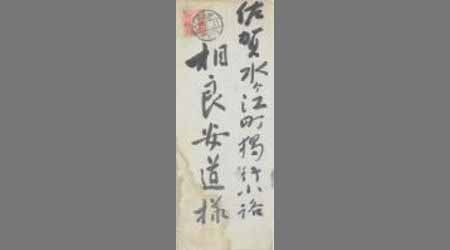 佐賀水ヶ江町独行小路
相良安道様